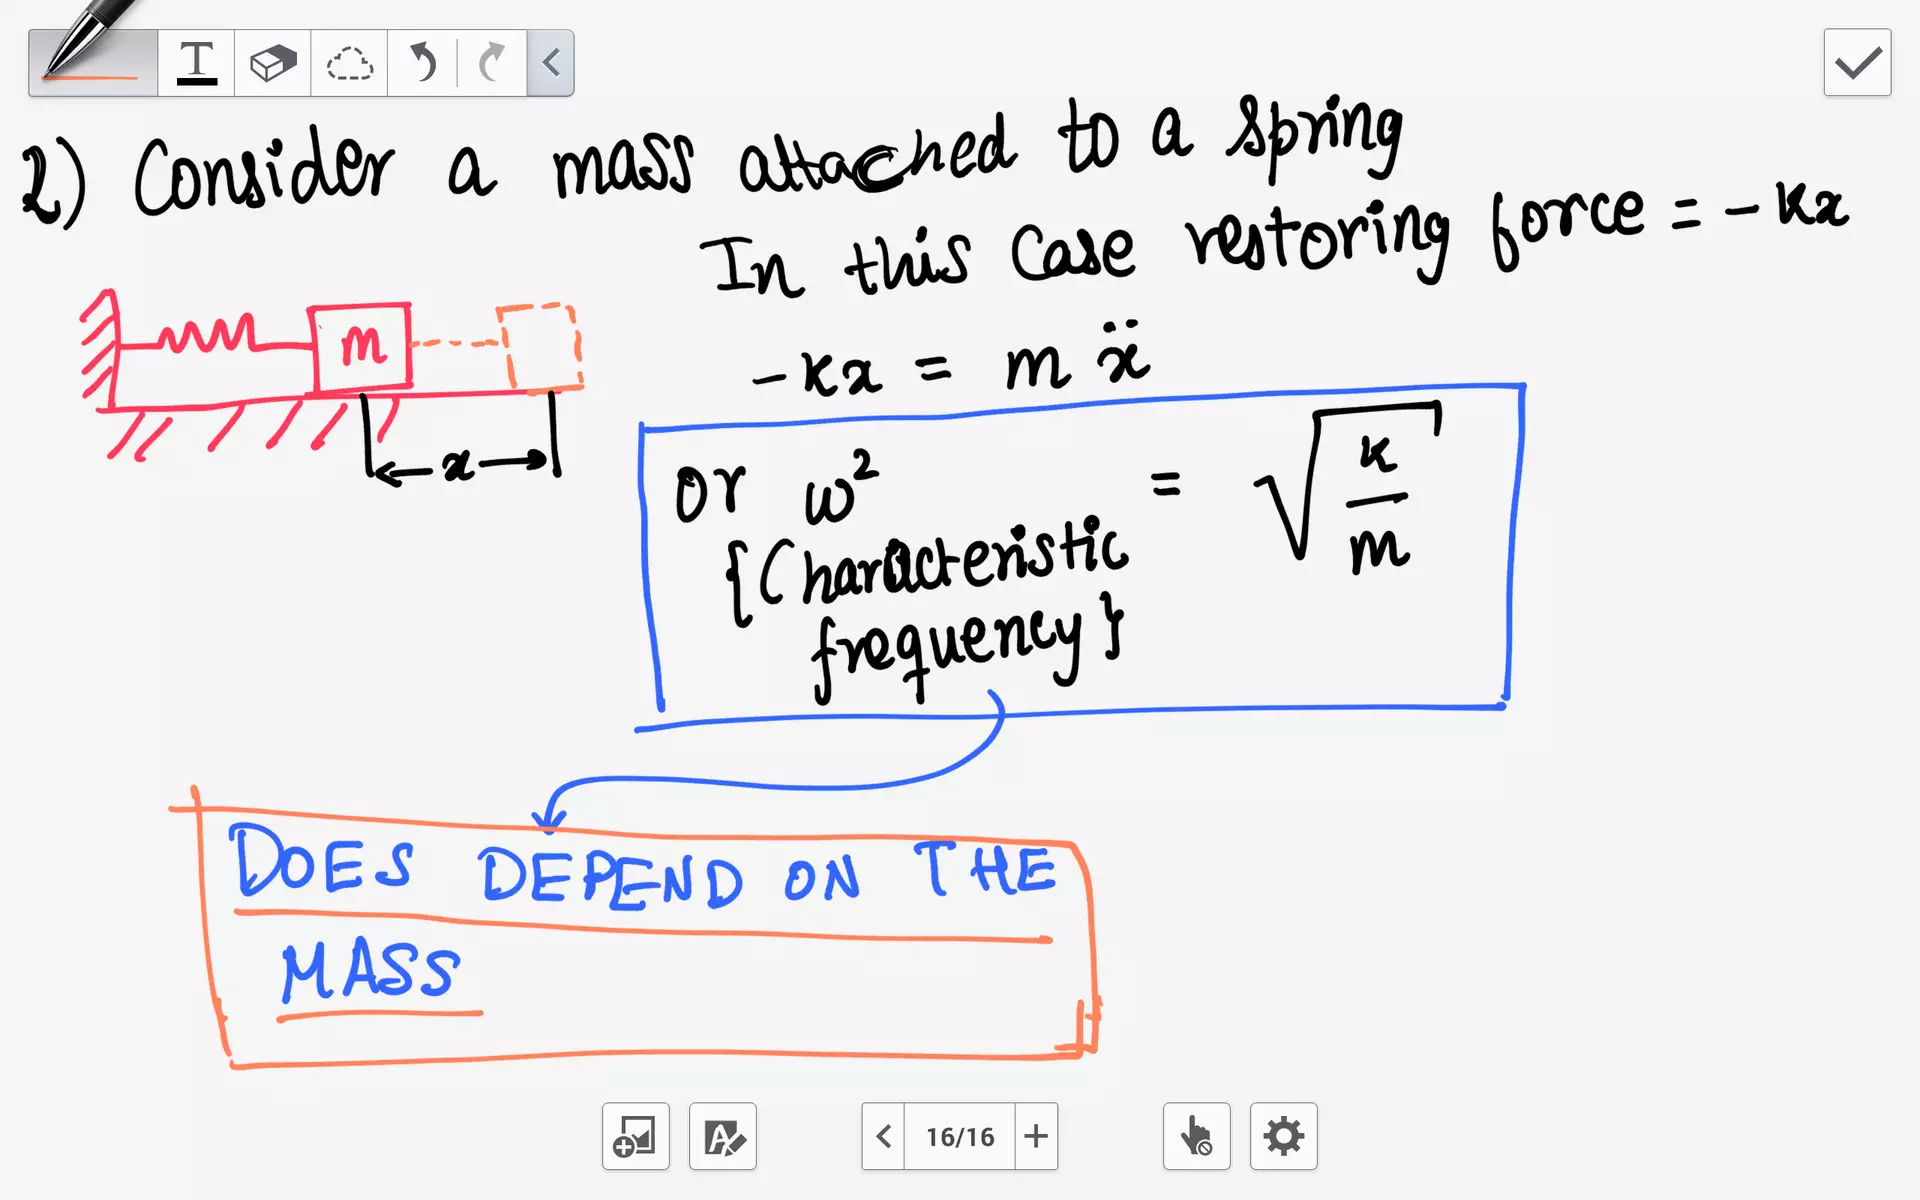 T
2) Consider a mass attached to a spring
In this Case restoring force = -kx
m
-kx = m ẍ
x
or ω² = √(k/m)
{Characteristic
frequency}
DOES DEPEND ON THE
MASS
16/16